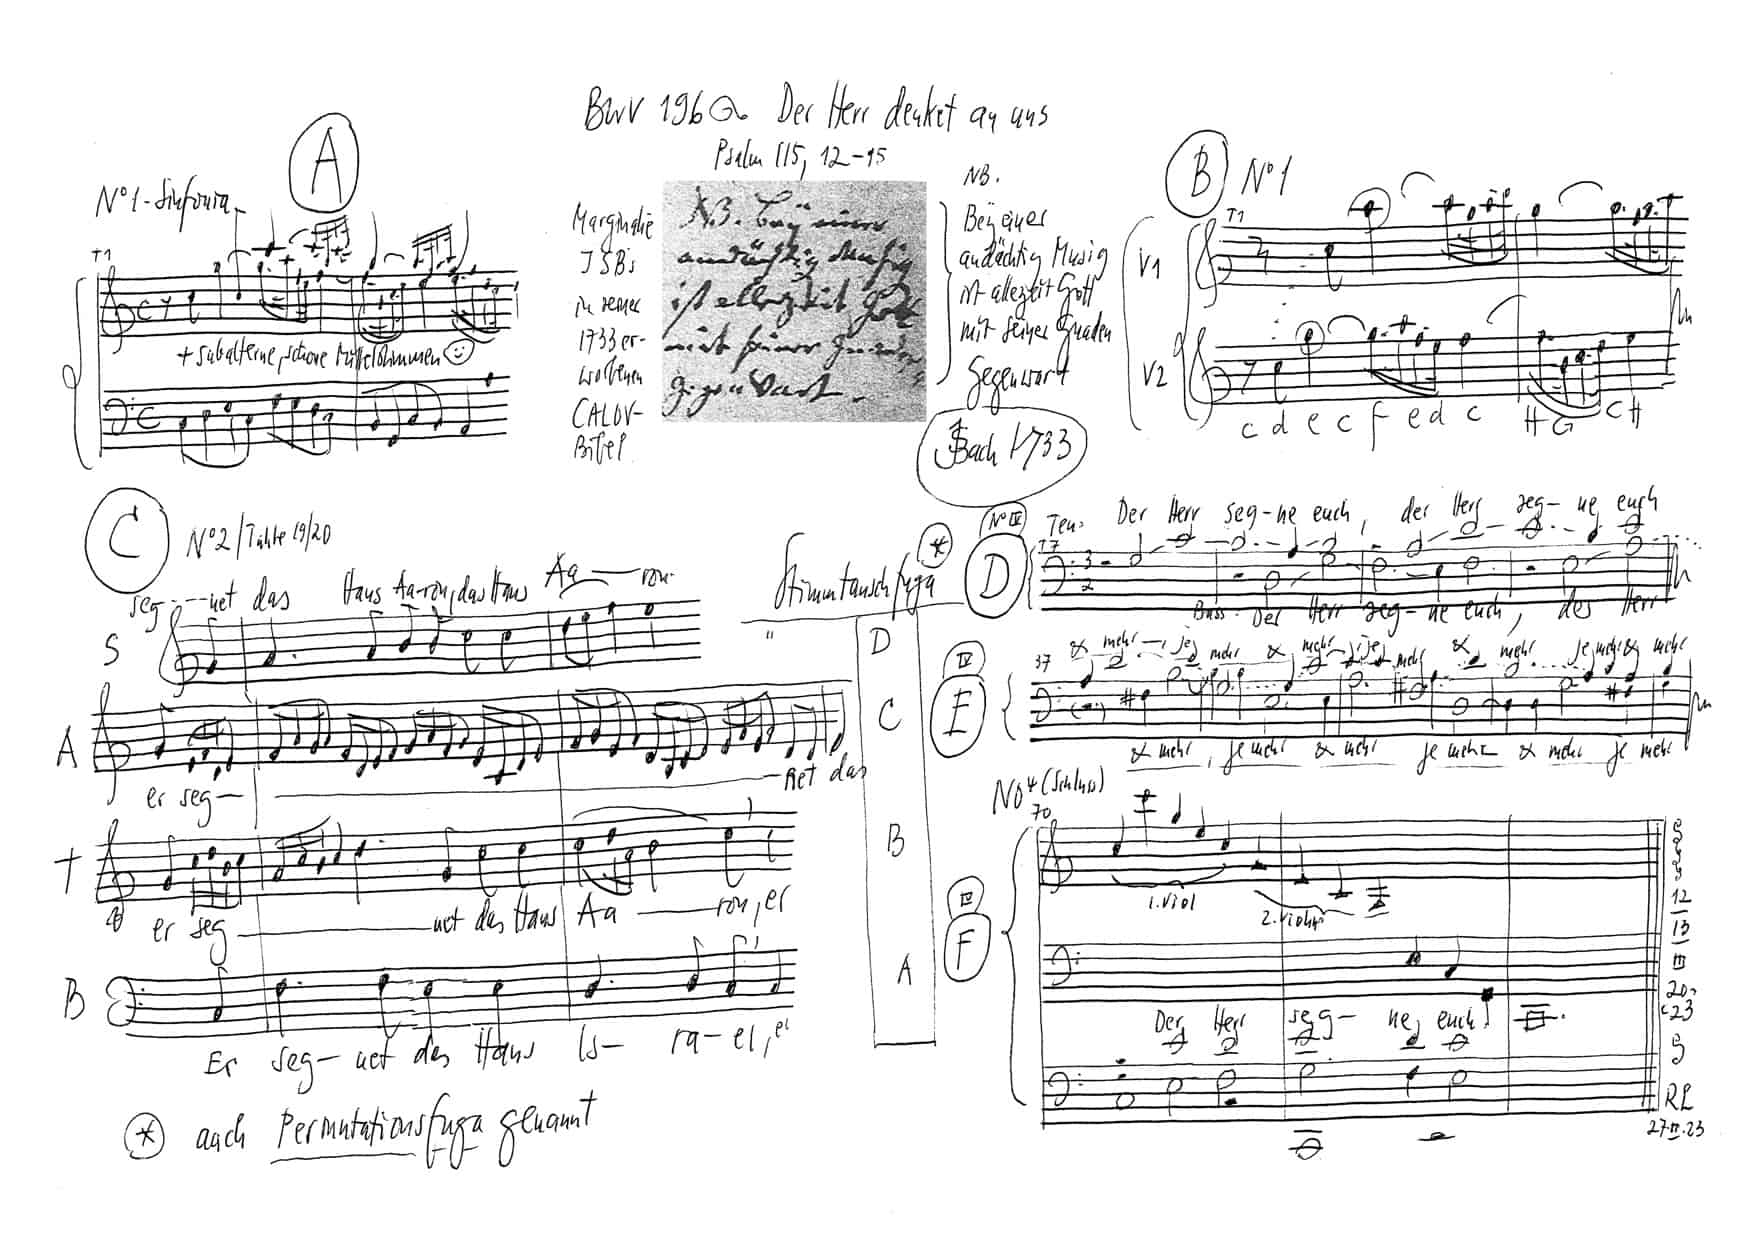 BWV 196 Der Herr denket an uns
Psalm 115, 12–15
A
N°1-Sinfonia
T1
+ subalterne, schöne Mittelstimmen
Marginalie
JSBs
in seiner
1733 er-
worbenen
CALOV-
Bibel
NB. Bey einer
andächtig Musig
ist allezeit Gott
mit seiner Gnaden
Gegenwart.
NB.
Bey einer
andächtig Musig
ist allezeit Gott
mit seiner Gnaden
Gegenwart
JSBach 1733
B N°1
T1
V1
V2
c d e c f e d c H G C H
C
N°2/Takte 19/20
seg---net das Haus Aa-ron, das Haus Aa—ron.
S
A
er seg— net das
T
er seg— net das Haus Aa—ron, er
B
Er seg-net das Haus Is-ra-el, er
* auch Permutationsfuga genannt
Stimmtauschfuga *
"
D
C
B
A
N°IV
D
T7
Ten. Der Herr seg-ne euch, der Herr seg-ne euch
3
2
Bass. Der Herr seg-ne euch, der Herr
IV
E
37
& mehr, je mehr & mehr, je mehr & mehr je mehr & mehr
& mehr, je mehr & mehr je mehr & mehr je mehr
N°4 (Schluss)
70
IV
F
1. Viol
2. Violine
Der Herr seg-ne euch!
12
13
III
20
23
RL
27.III.23